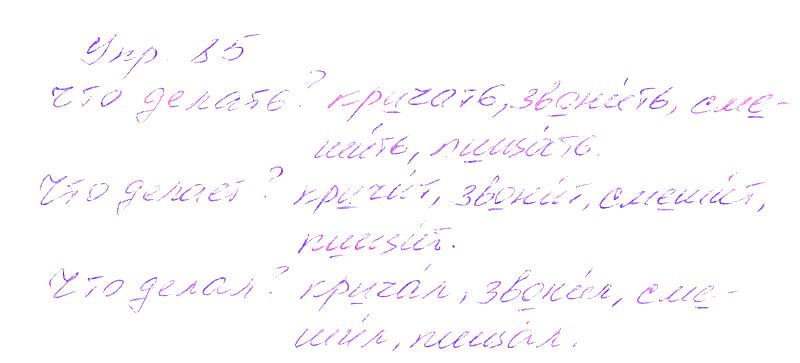 Упр. 85
Что делать? кричать, звони́ть, сме-
ши́ть, пища́ть.
Что делает? кричи́т, звони́т, смеши́т,
пищи́т.
Что делал? крича́л, звони́л, сме-
ши́л, пища́л.